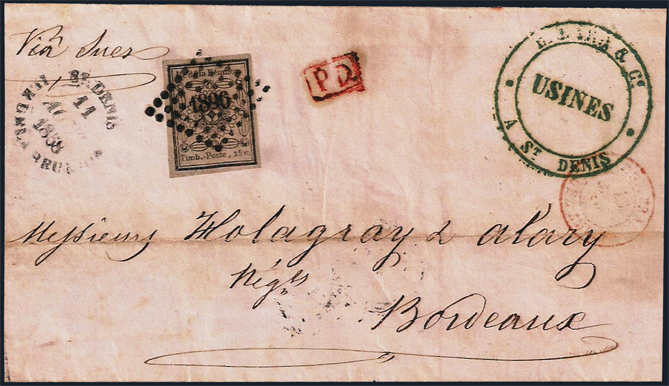 Via Suez
St DENIS
11
1858
ILE DE LA RÉUNION
Timb.-Poste, 15 c.
P.D.
& Co
USINES
A St DENIS
Messieurs Holagray & alary
Négts
Bordeaux